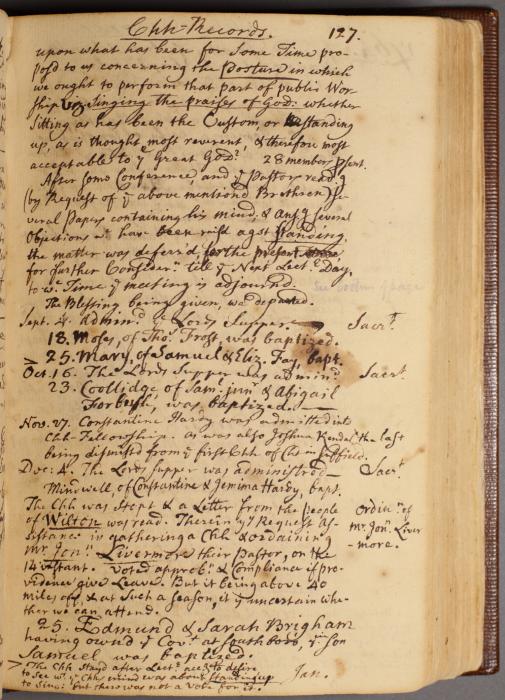 Chh-Records. 127.
upon what has been for some Time pro-
pos'd to us concerning the Posture in which
we ought to perform that part of public Wor-
ship viz Singing the praises of God: whether
sitting as has been the Custom, or standing
up, as is thought most reverent, & therefore most
acceptable to ye Great God? 28 members p'sent.
After some Conference, and ye Pastors readg
(by Request of ye above mentiond Brethren) se-
veral Papers containing his mind, & ansg several
Objections wc have been rais'd agst standing,
the matter was deferr'd, for the present
for further Considern till ye Next Lect. Day,
to wc Time ye meeting is adjournd.
The Blessing being given, we departed.
See bottom of page
Sept. 4. Admind ye Lords Supper. Sacrt.
18. Moses, of Tho. Frost, was baptized.
25. Mary, of Samuel & Eliz. Fay, bapt.
Oct. 16. The Lords Supper was admind Sacrt.
23. Coollidge of Saml junr & Abigail
Forbush, was baptized.
Nov. 27. Constantine Hardy was admitted into
Chh-Fellowship. as was also Joshua Kendal, the last
being dismist from ye first Chh of Ch in Suffield.
Dec: 4. The Lords Supper was administred Sacrt
Mindwell, of Constantine & Jemima Hardy, bapt.
The Chh was Stopt & a Letter from the People
of Wilton was read. Therein yy Request As-
sistance in gathering a Chh & ordaining
Mr. Jonn. Livermore their Pastor, on the
14 instant. Voted approbn. & Compliance if pro-
vidence give Leave. But it being above 40
miles off & at such a season, it is uncertain whe-
ther we can attend.
Ordin. of
Mr. Jon. Liver
-more.
25. Edmund & Sarah Brigham
having ownd ye Covt. at Southboro, yr son
Samuel was baptized.
The Chh Stayd after Lect. to desire
to see wt ye Chh mind was about standing up
to Sing: but there was not a Vote for it. Jan.